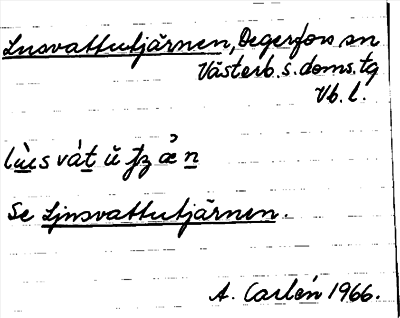 Lusvattutjärnen, Degerfors sn
Västerb. s. doms. tg
Vb. l.
Se Ljusvattutjärnen.
A. Carlén 1966.